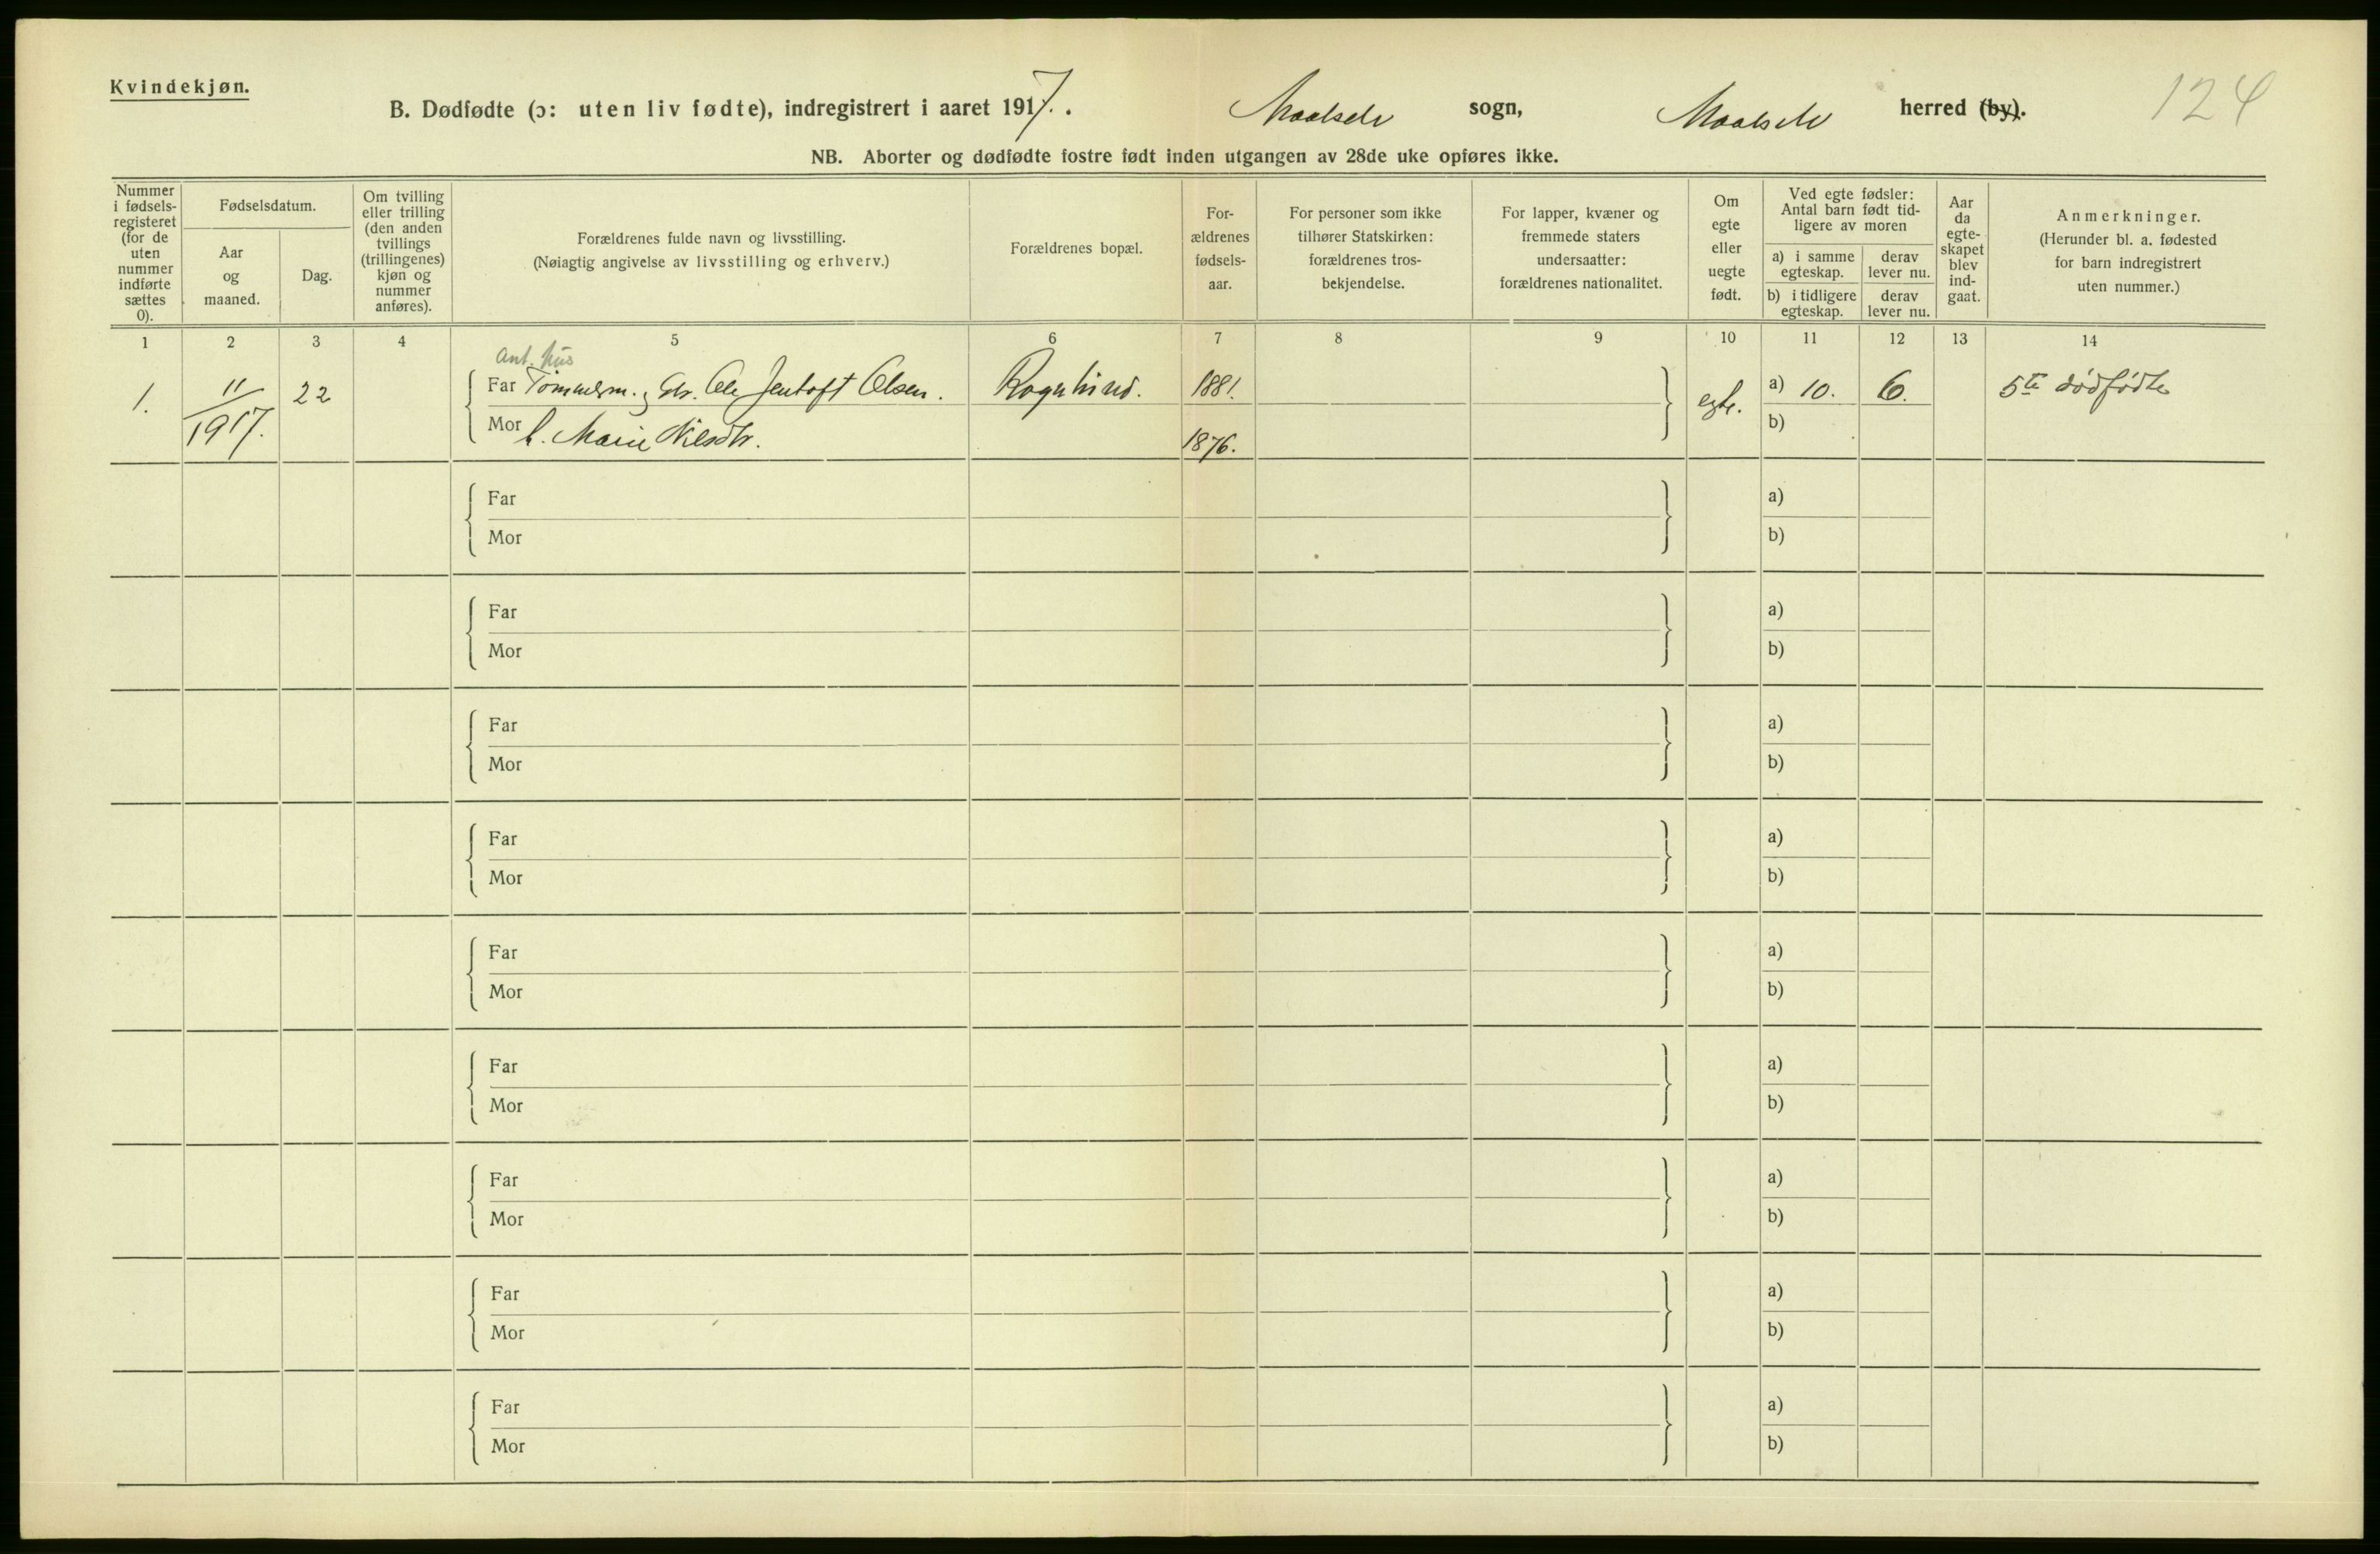 Kvindekjøn.
B. Dødfødte (ɔ: uten liv fødte), indregistrert i aaret 1917. Maalselv sogn, Maalselv herred (by). 124
NB. Aborter og dødfødte fostre født inden utgangen av 28de uke opføres ikke.
Nummer i fødsels-registeret (for de uten nummer indførte sættes 0).
Fødselsdatum.
Aar og maaned.
Dag.
Om tvilling eller trilling (den anden tvillings (trillingenes) kjøn og nummer anføres).
Forældrenes fulde navn og livsstilling.
(Nøiagtig angivelse av livsstilling og erhverv.)
Forældrenes bopæl.
For-ældrenes fødsels-aar.
For personer som ikke tilhører Statskirken: forældrenes tros-bekjendelse.
For lapper, kvæner og fremmede staters undersaatter: forældrenes nationalitet.
Om egte eller uegte født.
Ved egte fødsler: Antal barn født tid-ligere av moren
a) i samme egteskap.
derav lever nu.
b) i tidligere egteskap.
derav lever nu.
Aar da egte-skapet blev ind-gaat.
Anmerkninger.
(Herunder bl. a. fødested for barn indregistrert uten nummer.)
1 2 3 4 5 6 7 8 9 10 11 12 13 14
Ant. hus
1. 11/1917. 22 Far Tømmerm., Gbr. Ole Jentoft Olsen. 1881. egte. a) 10. 6. 5te dødfødte
Mor h. Marie Nilsdtr. 1876. b)
Far a)
Mor b)
Far a)
Mor b)
Far a)
Mor b)
Far a)
Mor b)
Far a)
Mor b)
Far a)
Mor b)
Far a)
Mor b)
Far a)
Mor b)
Far a)
Mor b)